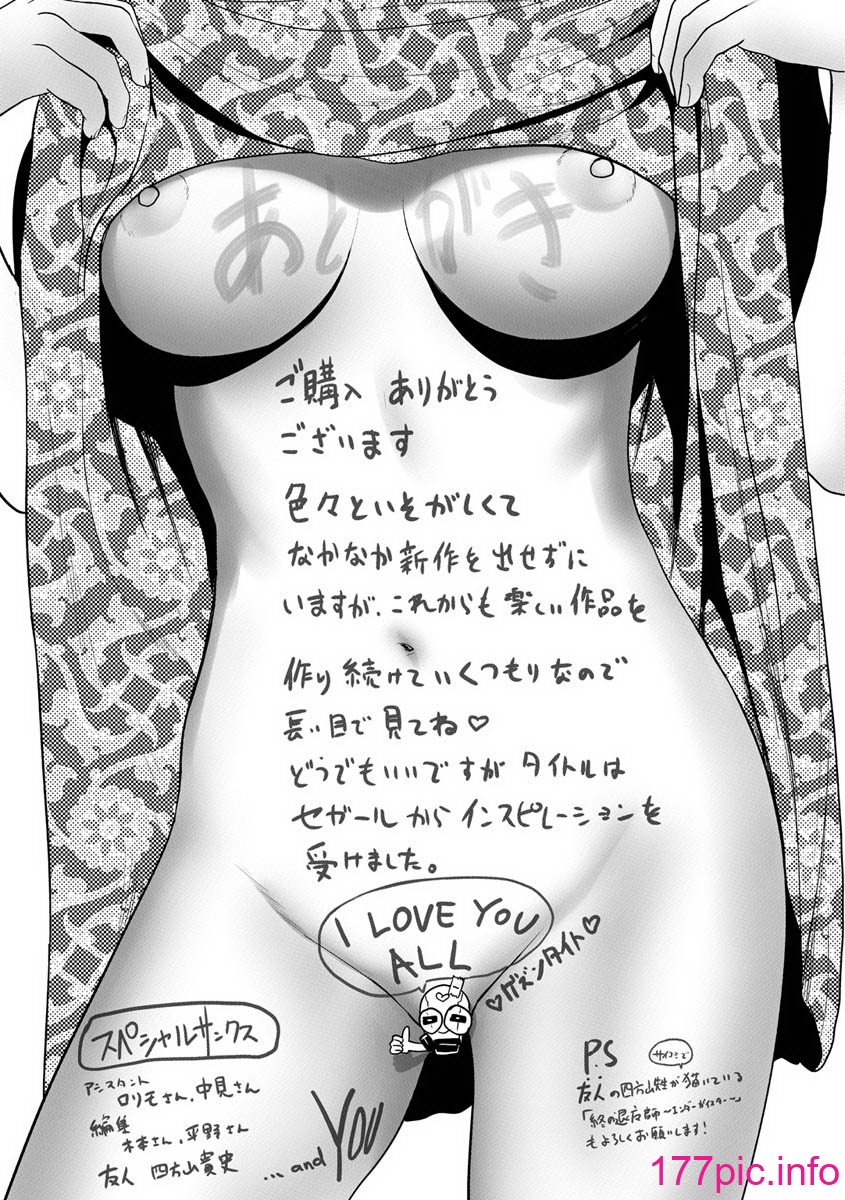 あとがき
ご購入 ありがとう
ございます
色々といそがしくて
なかなか新作を出せずに
いますが、これからも楽しい作品を
作り続けていくつもりなので
長い目で見てね♡
どうでもいいですが タイトルは
セガールから インスピレーションを
受けました。
I LOVE YOU
ALL
♡ゲズンタイト♡
スペシャルサンクス
アシスタント
ロリモさん、中見さん
編集
木本さん、平野さん
友人 四方山貴史
...and YOU
P.S
サイコミで
友人の四方山牲が描いている
「終の退友師～エンダーガイスター～」
もよろしくお願いします!
177pic.info